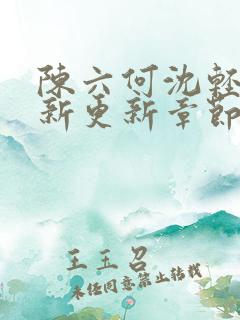 陳六何沈輕
新更新章節
王玉召
未经同意禁止转载